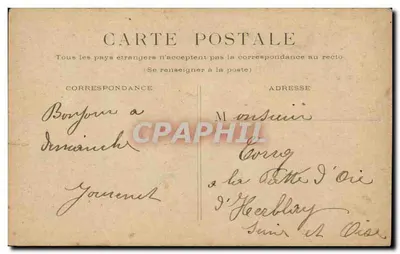 CARTE POSTALE
Tous les pays étrangers n'acceptent pas la correspondance au recto
(Se renseigner à la poste)
CORRESPONDANCE
ADRESSE
Bonjour a
dimanche
Monsieur
a la Patte d'Oie
d'Herblay
Seine et Oise
CPAPHIL